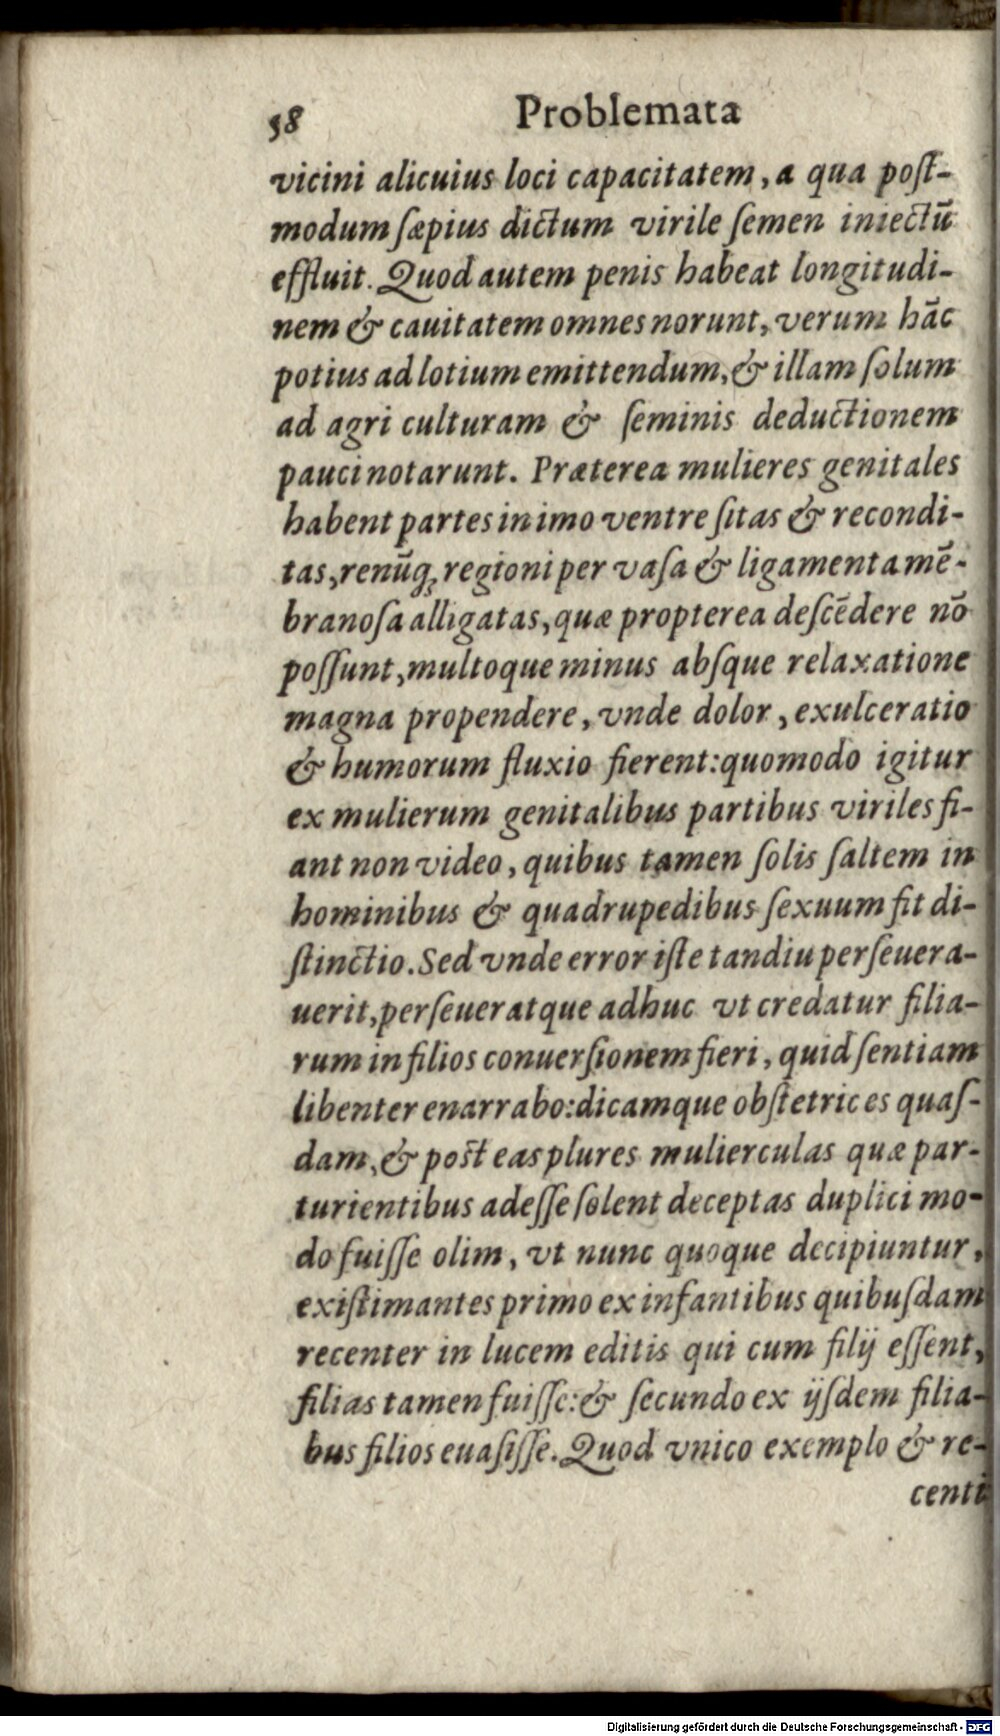 58 Problemata
vicini alicuius loci capacitatem, a qua poſt-
modum ſæpius dictum virile ſemen iniectū
effluit. Quod autem penis habeat longitudi-
nem & cauitatem omnes norunt, verum hāc
potius ad lotium emittendum, & illam ſolum
ad agri culturam & ſeminis deductionem
pauci notarunt. Præterea mulieres genitales
habent partes in imo ventre ſitas & recondi-
tas, renūq; regioni per vaſa & ligamenta mē-
branoſa alligatas, quæ propterea deſcēdere nō
poſſunt, multoque minus abſque relaxatione
magna propendere, vnde dolor, exulceratio
& humorum fluxio fierent: quomodo igitur
ex mulierum genitalibus partibus viriles fi-
ant non video, quibus tamen ſolis ſaltem in
hominibus & quadrupedibus ſexuum fit di-
ſtinctio. Sed vnde error iſte tandiu perſeuera-
uerit, perſeueratque adhuc vt credatur filia-
rum in filios conuerſionem fieri, quid ſentiam
libenter enarrabo: dicamque obſtetrices quaſ-
dam, & poſt eas plures mulierculas quæ par-
turientibus adeſſe ſolent deceptas duplici mo-
do fuiſſe olim, vt nunc quoque decipiuntur,
exiſtimantes primo ex infantibus quibuſdam
recenter in lucem editis qui cum filij eſſent,
filias tamen fuiſſe: & ſecundo ex ijſdem filia-
bus filios euaſiſſe. Quod vnico exemplo & re-
centi
Digitalisierung gefördert durch die Deutsche Forschungsgemeinschaft - DFG